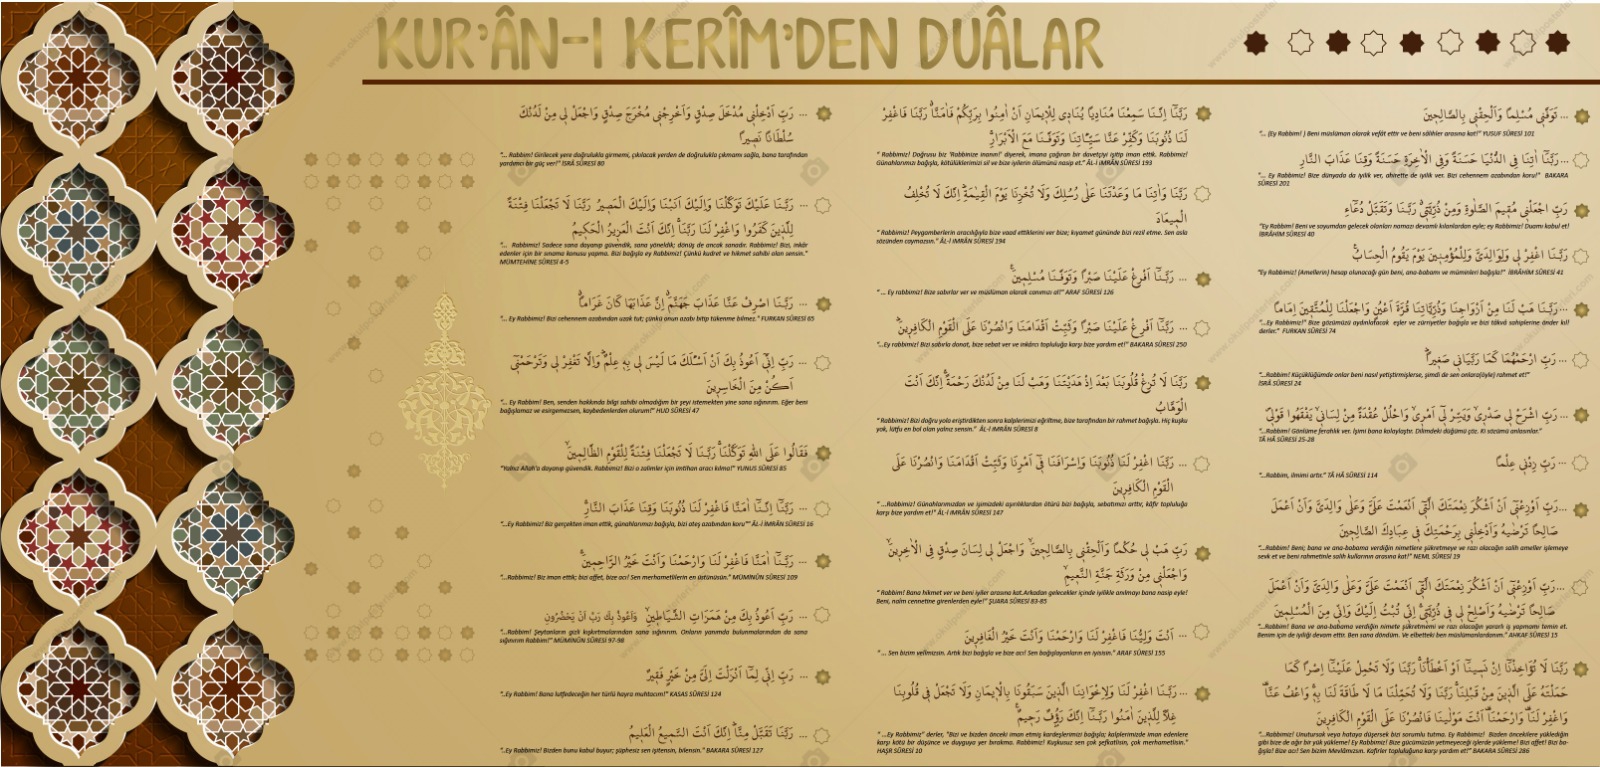 KUR'ÂN-I KERÎM'DEN DUÂLAR
... رَبِّ اَدْخِلْنٖي مُدْخَلَ صِدْقٍ وَاَخْرِجْنٖي مُخْرَجَ صِدْقٍ وَاجْعَلْ لٖي مِنْ لَدُنْكَ
سُلْطَانًا نَصٖيرًا
"... Rabbim! Girilecek yere doğrulukla girmemi, çıkılacak yerden de doğrulukla çıkmamı sağla, bana tarafından
yardımcı bir güç ver!" İSRÂ SÛRESİ 80
... رَبَّنَا عَلَيْكَ تَوَكَّلْنَا وَاِلَيْكَ اَنَبْنَا وَاِلَيْكَ الْمَصٖيرُ رَبَّنَا لَا تَجْعَلْنَا فِتْنَةً
لِلَّذٖينَ كَفَرُوا وَاغْفِرْ لَنَا رَبَّنَا اِنَّكَ اَنْتَ الْعَزٖيزُ الْحَكٖيمُ
"... Rabbimiz! Sadece sana dayanıp güvendik, sana yöneldik; dönüş de ancak sanadır. Rabbimiz! Bizi, inkâr
edenler için bir sınama konusu yapma. Bizi bağışla ey Rabbimiz! Çünkü kudret ve hikmet sahibi olan sensin."
MÜMTEHİNE SÛRESİ 4-5
... رَبَّنَا اصْرِفْ عَنَّا عَذَابَ جَهَنَّمَ اِنَّ عَذَابَهَا كَانَ غَرَامًا
"... Ey Rabbimiz! Bizi cehennem azabından uzak tut; çünkü onun azabı bitip tükenme bilmez." FURKAN SÛRESİ 65
... رَبِّ اِنّٖي اَعُوذُ بِكَ اَنْ اَسْـَٔلَكَ مَا لَيْسَ لٖي بِهٖ عِلْمٌ وَاِلَّا تَغْفِرْ لٖي وَتَرْحَمْنٖي
اَكُنْ مِنَ الْخَاسِرٖينَ
"... Ey Rabbim! Ben, senden hakkında bilgi sahibi olmadığım bir şeyi istemekten yine sana sığınırım. Eğer beni
bağışlamaz ve esirgemezsen, kaybedenlerden olurum!" HUD SÛRESİ 47
فَقَالُوا عَلَى اللّٰهِ تَوَكَّلْنَا رَبَّنَا لَا تَجْعَلْنَا فِتْنَةً لِلْقَوْمِ الظَّالِمٖينَ
"Yalnız Allah'a dayanıp güvendik. Rabbimiz! Bizi o zalimler için imtihan aracı kılma!" YUNUS SÛRESİ 85
... رَبَّنَا اِنَّنَا اٰمَنَّا فَاغْفِرْ لَنَا ذُنُوبَنَا وَقِنَا عَذَابَ النَّارِ
"...Ey Rabbimiz! Biz gerçekten iman ettik, günahlarımızı bağışla, bizi ateş azabından koru"" ÂL-İ İMRÂN SÛRESİ 16
... رَبَّنَا اٰمَنَّا فَاغْفِرْ لَنَا وَارْحَمْنَا وَاَنْتَ خَيْرُ الرَّاحِمٖينَ
"...Rabbimiz! Biz iman ettik; bizi affet, bize acı! Sen merhametlilerin en üstünüsün." MÜMİNÛN SÛRESİ 109
... رَبِّ اَعُوذُ بِكَ مِنْ هَمَزَاتِ الشَّيَاطٖينِ وَاَعُوذُ بِكَ رَبِّ اَنْ يَحْضُرُونِ
"...Rabbim! Şeytanların gizli kışkırtmalarından sana sığınırım. Onların yanımda bulunmalarından da sana
sığınırım Rabbim!" MÜMİNÛN SÛRESİ 97-98
... رَبِّ اِنّٖي لِمَا اَنْزَلْتَ اِلَيَّ مِنْ خَيْرٍ فَقٖيرٌ
"..Ey Rabbim! Bana lutfedeceğin her türlü hayra muhtacım!" KASAS SÛRESİ 124
رَبَّنَا تَقَبَّلْ مِنَّا اِنَّكَ اَنْتَ السَّمٖيعُ الْعَلٖيمُ
"..Ey Rabbimiz! Bizden bunu kabul buyur; şüphesiz sen işitensin, bilensin." BAKARA SÛRESİ 127
رَبَّنَا اِنَّنَا سَمِعْنَا مُنَادِيًا يُنَادٖي لِلْاٖيمَانِ اَنْ اٰمِنُوا بِرَبِّكُمْ فَاٰمَنَّا رَبَّنَا فَاغْفِرْ
لَنَا ذُنُوبَنَا وَكَفِّرْ عَنَّا سَيِّـَٔاتِنَا وَتَوَفَّنَا مَعَ الْاَبْرَارِ
" Rabbimiz! Doğrusu biz 'Rabbinize inanın!' diyerek, imana çağıran bir davetçiyi işitip iman ettik. Rabbimiz!
Günahlarımızı bağışla, kötülüklerimizi sil ve bize iyilerin ölümünü nasip et." ÂL-İ IMRÂN SÛRESİ 193
رَبَّنَا وَاٰتِنَا مَا وَعَدْتَنَا عَلٰى رُسُلِكَ وَلَا تُخْزِنَا يَوْمَ الْقِيٰمَةِ اِنَّكَ لَا تُخْلِفُ
الْمٖيعَادَ
" Rabbimiz! Peygamberlerin aracılığıyla bize vaad ettiklerini ver bize; kıyamet gününde bizi rezil etme. Sen asla
sözünden caymazsın." ÂL-İ IMRÂN SÛRESİ 194
... رَبَّنَا اَفْرِغْ عَلَيْنَا صَبْرًا وَتَوَفَّنَا مُسْلِمٖينَ
" ... Ey rabbimiz! Bize sabırlar ver ve müslüman olarak canımızı al!" ARAF SÛRESİ 126
... رَبَّنَا اَفْرِغْ عَلَيْنَا صَبْرًا وَثَبِّتْ اَقْدَامَنَا وَانْصُرْنَا عَلَى الْقَوْمِ الْكَافِرٖينَ
"...Ey rabbimiz! Bizi sabırla donat, bize sebat ver ve inkârcı topluluğa karşı bize yardım et!" BAKARA SÛRESİ 250
رَبَّنَا لَا تُزِغْ قُلُوبَنَا بَعْدَ اِذْ هَدَيْتَنَا وَهَبْ لَنَا مِنْ لَدُنْكَ رَحْمَةً اِنَّكَ اَنْتَ
الْوَهَّابُ
" Rabbimiz! Bizi doğru yola eriştirdikten sonra kalplerimizi eğriltme, bize tarafından bir rahmet bağışla. Hiç kuşku
yok, lütfu en bol olan yalnız sensin." ÂL-İ IMRÂN SÛRESİ 8
... رَبَّنَا اغْفِرْ لَنَا ذُنُوبَنَا وَاِسْرَافَنَا فٖي اَمْرِنَا وَثَبِّتْ اَقْدَامَنَا وَانْصُرْنَا عَلَى
الْقَوْمِ الْكَافِرٖينَ
"...Rabbimiz! Günahlarımızdan ve işimizdeki aşırılıklardan ötürü bizi bağışla, sebatımızı arttır, kâfir topluluğa
karşı bize yardım et!" ÂL-İ IMRÂN SÛRESİ 147
رَبِّ هَبْ لٖي حُكْمًا وَاَلْحِقْنٖي بِالصَّالِحٖينَ وَاجْعَلْ لٖي لِسَانَ صِدْقٍ فِي الْاٰخِرٖينَ
وَاجْعَلْنٖي مِنْ وَرَثَةِ جَنَّةِ النَّعٖيمِ
" Rabbim! Bana hikmet ver ve beni iyiler arasına kat.Arkadan gelecekler içinde iyilikle anılmayı bana nasip eyle!
Beni, naîm cennetine girenlerden eyle!" ŞUARA SÛRESİ 83-85
... اَنْتَ وَلِيُّنَا فَاغْفِرْ لَنَا وَارْحَمْنَا وَاَنْتَ خَيْرُ الْغَافِرٖينَ
" ... Sen bizim velimizsin. Artık bizi bağışla ve bize acı! Sen bağışlayanların en iyisisin." ARAF SÛRESİ 155
... رَبَّنَا اغْفِرْ لَنَا وَلِاِخْوَانِنَا الَّذٖينَ سَبَقُونَا بِالْاٖيمَانِ وَلَا تَجْعَلْ فٖي قُلُوبِنَا
غِلًّا لِلَّذٖينَ اٰمَنُوا رَبَّنَا اِنَّكَ رَؤُفٌ رَحٖيمٌ
"...Ey Rabbimiz" derler, "Bizi ve bizden önceki iman etmiş kardeşlerimizi bağışla; kalplerimizde iman edenlere
karşı kötü bir düşünce ve duyguya yer bırakma. Rabbimiz! Kuşkusuz sen çok şefkatlisin, çok merhametlisin."
HAŞR SÛRESİ 10
... تَوَفَّنٖي مُسْلِمًا وَاَلْحِقْنٖي بِالصَّالِحٖينَ
"... (Ey Rabbim! ) Beni müslüman olarak vefât ettir ve beni sâlihler arasına kat!" YUSUF SÛRESİ 101
...رَبَّنَا اٰتِنَا فِي الدُّنْيَا حَسَنَةً وَفِي الْاٰخِرَةِ حَسَنَةً وَقِنَا عَذَابَ النَّارِ
"... Ey Rabbimiz! Bize dünyada da iyilik ver, ahirette de iyilik ver. Bizi cehennem azabından koru!" BAKARA
SÛRESİ 201
رَبِّ اجْعَلْنٖي مُقٖيمَ الصَّلٰوةِ وَمِنْ ذُرِّيَّتٖي رَبَّنَا وَتَقَبَّلْ دُعَاءِ
"Ey Rabbim! Beni ve soyumdan gelecek olanları namazı devamlı kılanlardan eyle; ey Rabbim! Duamı kabul et!
İBRÂHİM SÛRESİ 40
رَبَّنَا اغْفِرْ لٖي وَلِوَالِدَيَّ وَلِلْمُؤْمِنٖينَ يَوْمَ يَقُومُ الْحِسَابُ
"Ey Rabbimiz! (Amellerin) hesap olunacağı gün beni, ana-babamı ve müminleri bağışla!" İBRÂHİM SÛRESİ 41
...رَبَّنَا هَبْ لَنَا مِنْ اَزْوَاجِنَا وَذُرِّيَّاتِنَا قُرَّةَ اَعْيُنٍ وَاجْعَلْنَا لِلْمُتَّقٖينَ اِمَامًا
"...Ey Rabbimiz!" Bize gözümüzü aydınlatacak eşler ve zürriyetler bağışla ve bizi takvâ sahiplerine önder kıl!
derler." FURKAN SÛRESİ 74
... رَبِّ ارْحَمْهُمَا كَمَا رَبَّيَانٖي صَغٖيرًا
"...Rabbim! Küçüklüğümde onlar beni nasıl yetiştirmişlerse, şimdi de sen onlara(öyle) rahmet et!"
İSRÂ SÛRESİ 24
... رَبِّ اشْرَحْ لٖي صَدْرٖي وَيَسِّرْ لٖي اَمْرٖي وَاحْلُلْ عُقْدَةً مِنْ لِسَانٖي يَفْقَهُوا قَوْلٖي
"...Rabbim! Gönlüme ferahlık ver. İşimi bana kolaylaştır. Dilimdeki düğümü çöz. Ki sözümü anlasınlar."
TÂ HÂ SÛRESİ 25-28
... رَبِّ زِدْنٖي عِلْمًا
"...Rabbim, ilmimi artır." TÂ HÂ SÛRESİ 114
...رَبِّ اَوْزِعْنٖي اَنْ اَشْكُرَ نِعْمَتَكَ الَّتٖي اَنْعَمْتَ عَلَيَّ وَعَلٰى وَالِدَيَّ وَاَنْ اَعْمَلَ
صَالِحًا تَرْضٰيهُ وَاَدْخِلْنٖي بِرَحْمَتِكَ فٖي عِبَادِكَ الصَّالِحٖينَ
"...Rabbim! Beni; bana ve ana-babama verdiğin nimetlere şükretmeye ve razı olacağın salih ameller işlemeye
sevk et ve beni rahmetinle salih kullarının arasına kat!" NEML SÛRESİ 19
...رَبِّ اَوْزِعْنٖي اَنْ اَشْكُرَ نِعْمَتَكَ الَّتٖي اَنْعَمْتَ عَلَيَّ وَعَلٰى وَالِدَيَّ وَاَنْ اَعْمَلَ
صَالِحًا تَرْضٰيهُ وَاَصْلِحْ لٖي فٖي ذُرِّيَّتٖي اِنّٖي تُبْتُ اِلَيْكَ وَاِنّٖي مِنَ الْمُسْلِمٖينَ
"...Rabbim! Bana ve ana-babama verdiğin nimete şükretmemi ve razı olacağın yararlı iş yapmamı temin et.
Benim için de iyiliği devam ettir. Ben sana döndüm. Ve elbetteki ben müslümanlardanım." AHKAF SÛRESİ 15
رَبَّنَا لَا تُؤَاخِذْنَا اِنْ نَسٖينَا اَوْ اَخْطَأْنَا رَبَّنَا وَلَا تَحْمِلْ عَلَيْنَا اِصْرًا كَمَا
حَمَلْتَهُ عَلَى الَّذٖينَ مِنْ قَبْلِنَا رَبَّنَا وَلَا تُحَمِّلْنَا مَا لَا طَاقَةَ لَنَا بِهٖ وَاعْفُ عَنَّا
وَاغْفِرْ لَنَا وَارْحَمْنَا اَنْتَ مَوْلٰينَا فَانْصُرْنَا عَلَى الْقَوْمِ الْكَافِرٖينَ
"...Rabbimiz! Unutursak veya hataya düşersek bizi sorumlu tutma. Ey Rabbimiz! Bizden öncekilere yüklediğin
gibi bize de ağır bir yük yükleme! Ey Rabbimiz! Bize gücümüzün yetmeyeceği işlerde yükleme! Bizi affet! Bizi ba-
ğışla! Bize acı! Sen bizim Mevlâmızsın. Kafirler topluluğuna karşı yardım et!" BAKARA SÛRESİ 286